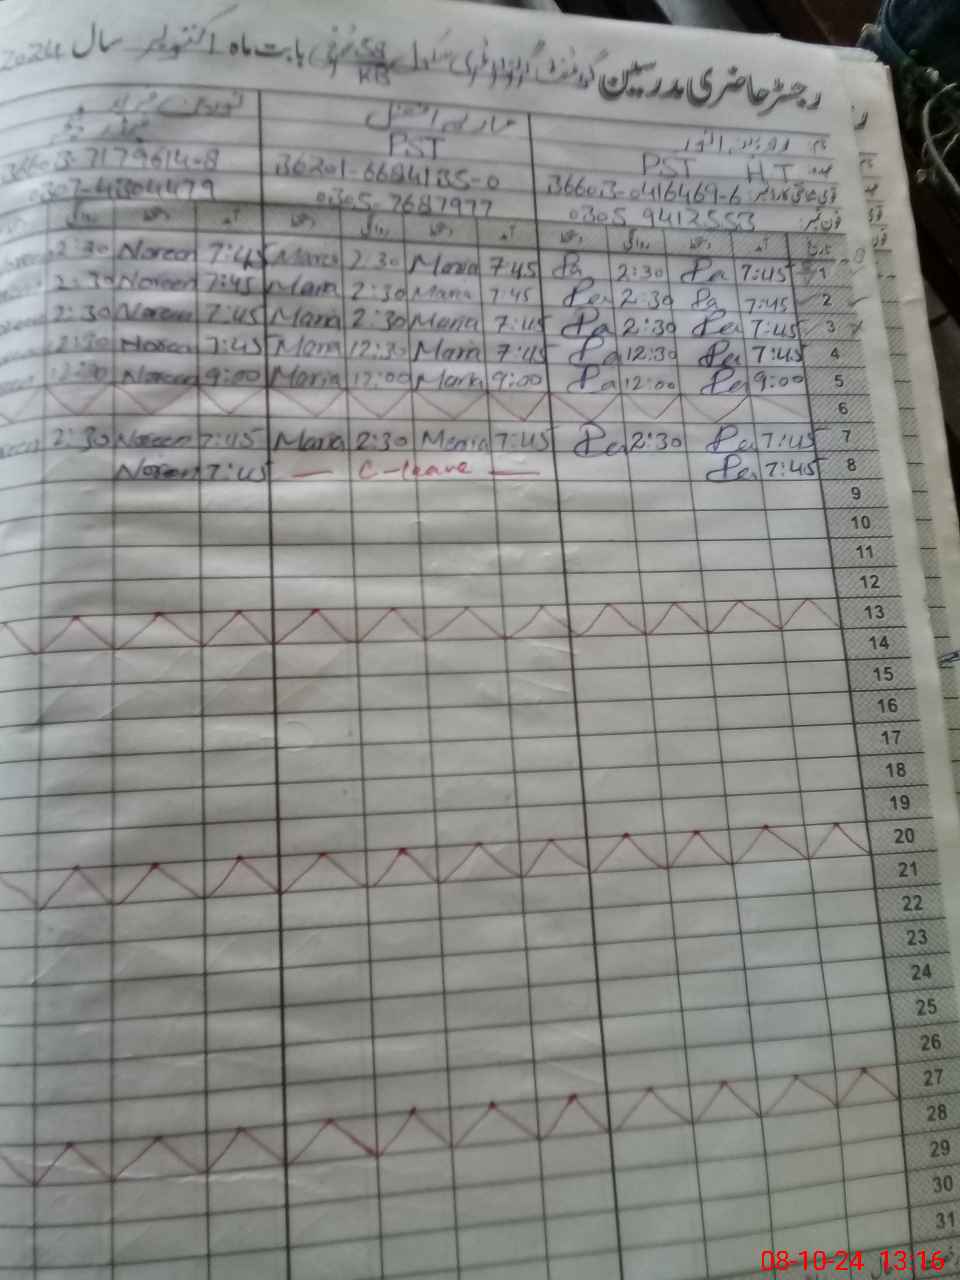 رجسٹر حاضری مدرسین گورنمنٹ گرلز پرائمری سکول 58/KB غربی بابت ماہ اکتوبر سال 2024
PST H.T PST
36603-0416469-6 36201-6684135-0 36603-7179614-8
0305-9412553 0305-7687977 0307-4304479
آمد دستخط روانگی دستخط آمد دستخط روانگی دستخط آمد دستخط روانگی
1 7:45 Pa 2:30 Pa 7:45 Maria 2:30 Maria 7:45 Noreen 2:30
2 7:45 Pa 2:30 Pa 7:45 Maria 2:30 Maria 7:45 Noreen 2:30
3 7:45 Pa 2:30 Pa 7:45 Maria 2:30 Maria 7:45 Noreen 2:30
4 7:45 Pa 12:30 Pa 7:45 Maria 12:30 Maria 7:45 Noreen 12:30
5 9:00 Pa 12:00 Pa 9:00 Maria 12:00 Maria 9:00 Noreen
6
7 7:45 Pa 2:30 Pa 7:45 Maria 2:30 Maria 7:45 Noreen 2:30
8 7:45 Pa — C-leave — 7:45 Noreen
9
10
11
12
13
14
15
16
17
18
19
20
21
22
23
24
25
26
27
28
29
30
31
08-10-24 13:16